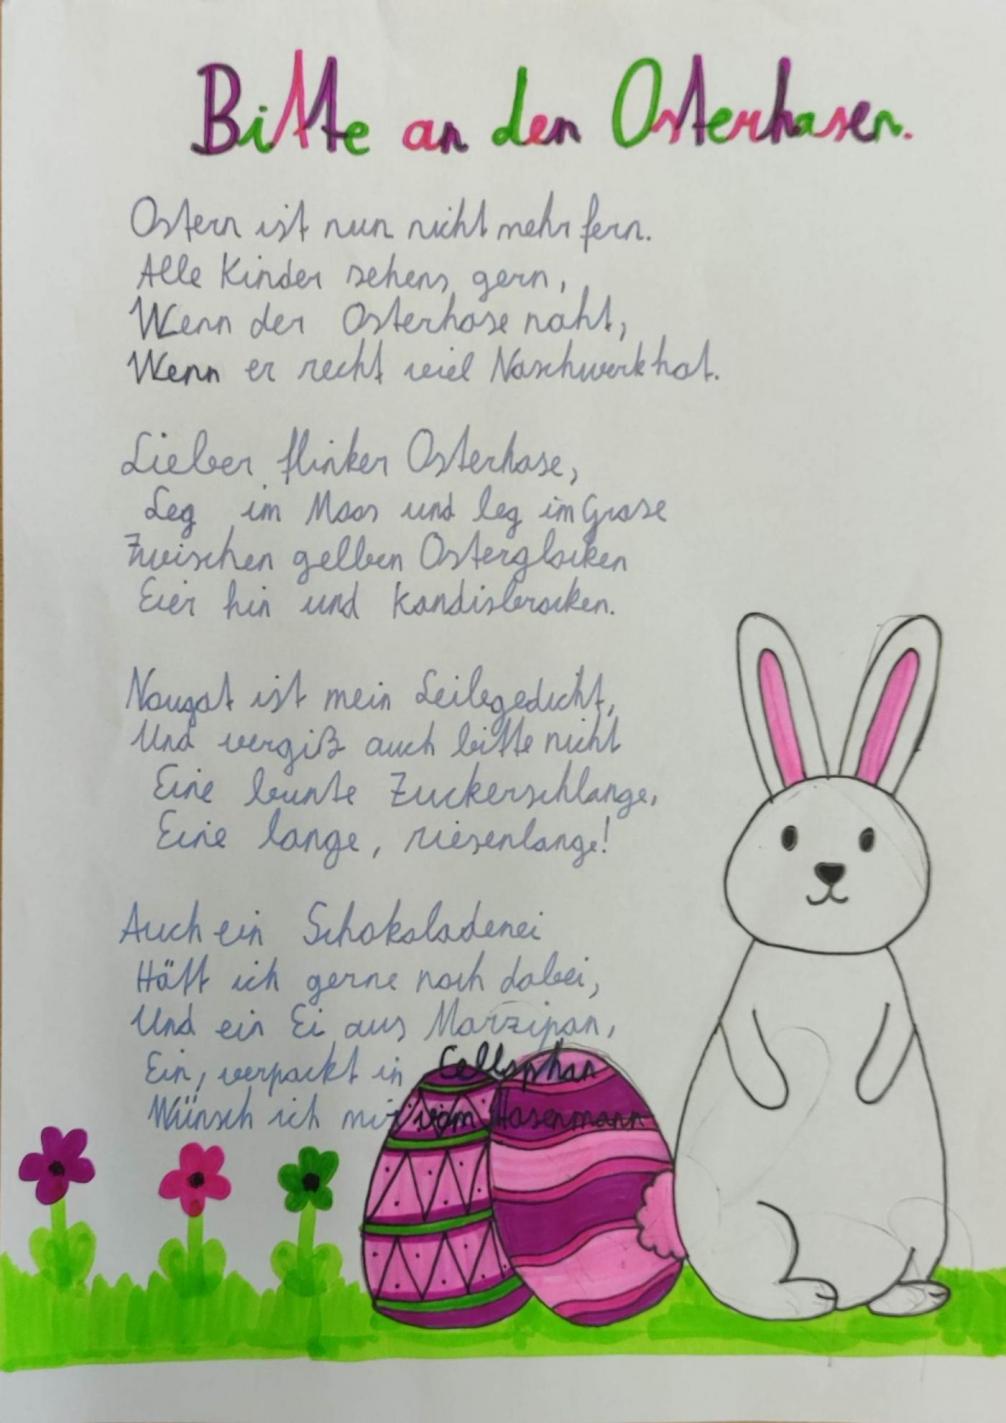 Bitte an den Osterhasen.
Ostern ist nun nicht mehr fern.
Alle Kinder sehens gern,
Wenn der Osterhase naht,
Wenn er recht viel Naschwerk hat.
Lieber flinker Osterhase,
Leg im Moos und leg im Grase
Zwischen gelben Osterglocken
Eier hin und Kandisbrocken.
Nougat ist mein Leibgedicht,
Und vergiß auch bitte nicht
Eine bunte Zuckerschlange,
Eine lange, riesenlange!
Auch ein Schokoladenei
Hätt ich gerne noch dabei,
Und ein Ei aus Marzipan,
Ein, verpackt in Cellophan
Wünsch ich mir vom Hasenmann